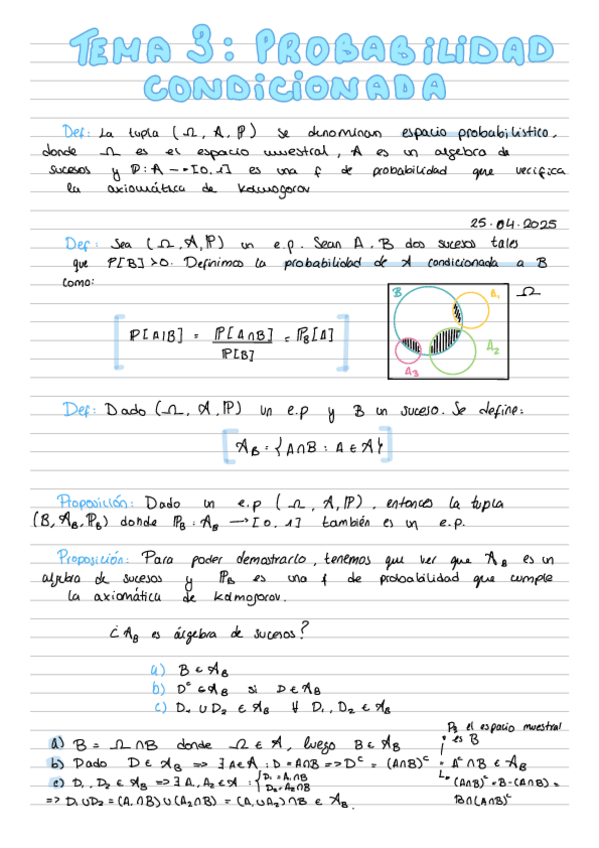 TEMA 3: PROBABILIDAD
CONDICIONADA
Def: La tupla (Ω, A, P) se denominan espacio probabilístico,
donde Ω es el espacio muestral, A es un algebra de
sucesos y P: A → [0,1] es una f de probabilidad que verifica
la axiomática de Kolmogorov
25·04·2025
Def: Sea (Ω, A, P) un e.p. Sean A, B dos sucesos tales
que P[B] > 0. Definimos la probabilidad de A condicionada a B
como:
P[A|B] = P[A∩B] / P[B] = P_B[A]
B A₁ Ω
A₂
A₃
Def: Dado (Ω, A, P) un e.p y B un suceso. Se define:
A_B = {A∩B : A ∈ A}
Proposición: Dado un e.p (Ω, A, P), entonces la tupla
(B, A_B, P_B) donde P_B : A_B → [0,1] también es un e.p.
Proposición: Para poder demostrarlo, tenemos que ver que A_B es un
algebra de sucesos y P_B es una f de probabilidad que cumple
la axiomática de Kolmogorov.
¿A_B es álgebra de sucesos?
a) B ∈ A_B
b) Dᶜ ∈ A_B si D ∈ A_B
c) D₁ ∪ D₂ ∈ A_B ∀ D₁, D₂ ∈ A_B
el espacio muestral
es B
a) B = Ω ∩ B donde Ω ∈ A, luego B ∈ A_B
b) Dado D ∈ A_B => ∃ A ∈ A : D = A∩B => Dᶜ = (A∩B)ᶜ = Aᶜ∩B ∈ A_B
(A∩B)ᶜ = B-(A∩B) =
B∩(A∩B)ᶜ
c) D₁, D₂ ∈ A_B => ∃ A₁, A₂ ∈ A : { D₁ = A₁∩B
D₂ = A₂∩B
=> D₁∪D₂ = (A₁∩B)∪(A₂∩B) = (A₁∪A₂)∩B ∈ A_B.